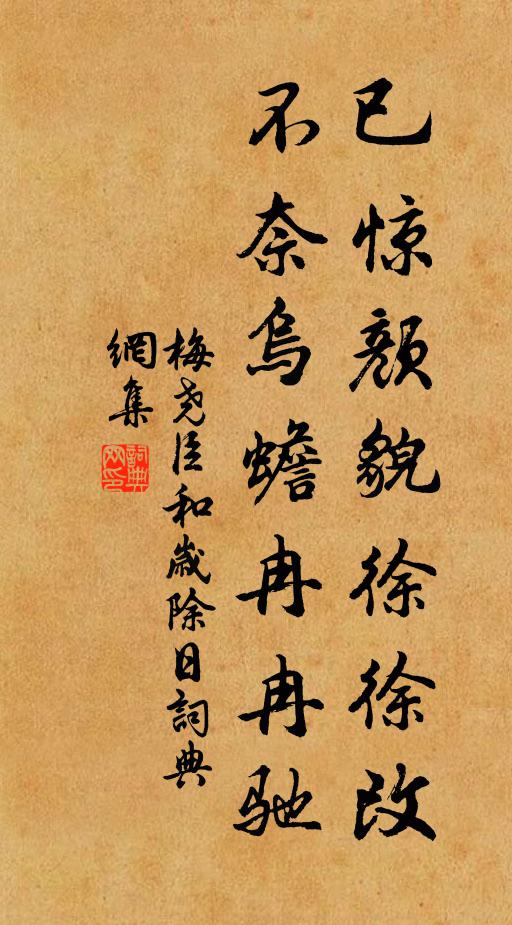 已惊颜貌徐徐改
不奈乌蟾冉冉驰
梅尧臣和歲除日詞典
網集
詞典
网印